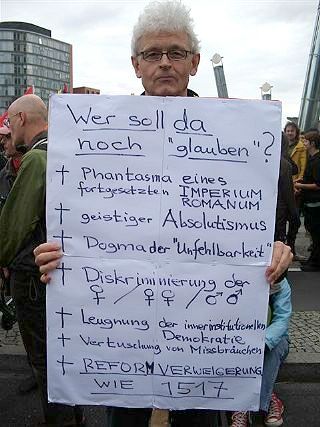 Wer soll da
noch "glauben"?
† Phantasma eines
fortgesetzten IMPERIUM
ROMANUM
† geistiger Absolutismus
† Dogma der "Unfehlbarkeit"
† Diskriminierung der
♀ / ♀♀ / ♂♂
† Leugnung der innerinstitutionellen
Demokratie
† Vertuschung von Missbräuchen
† REFORMVERWEIGERUNG
WIE 1517